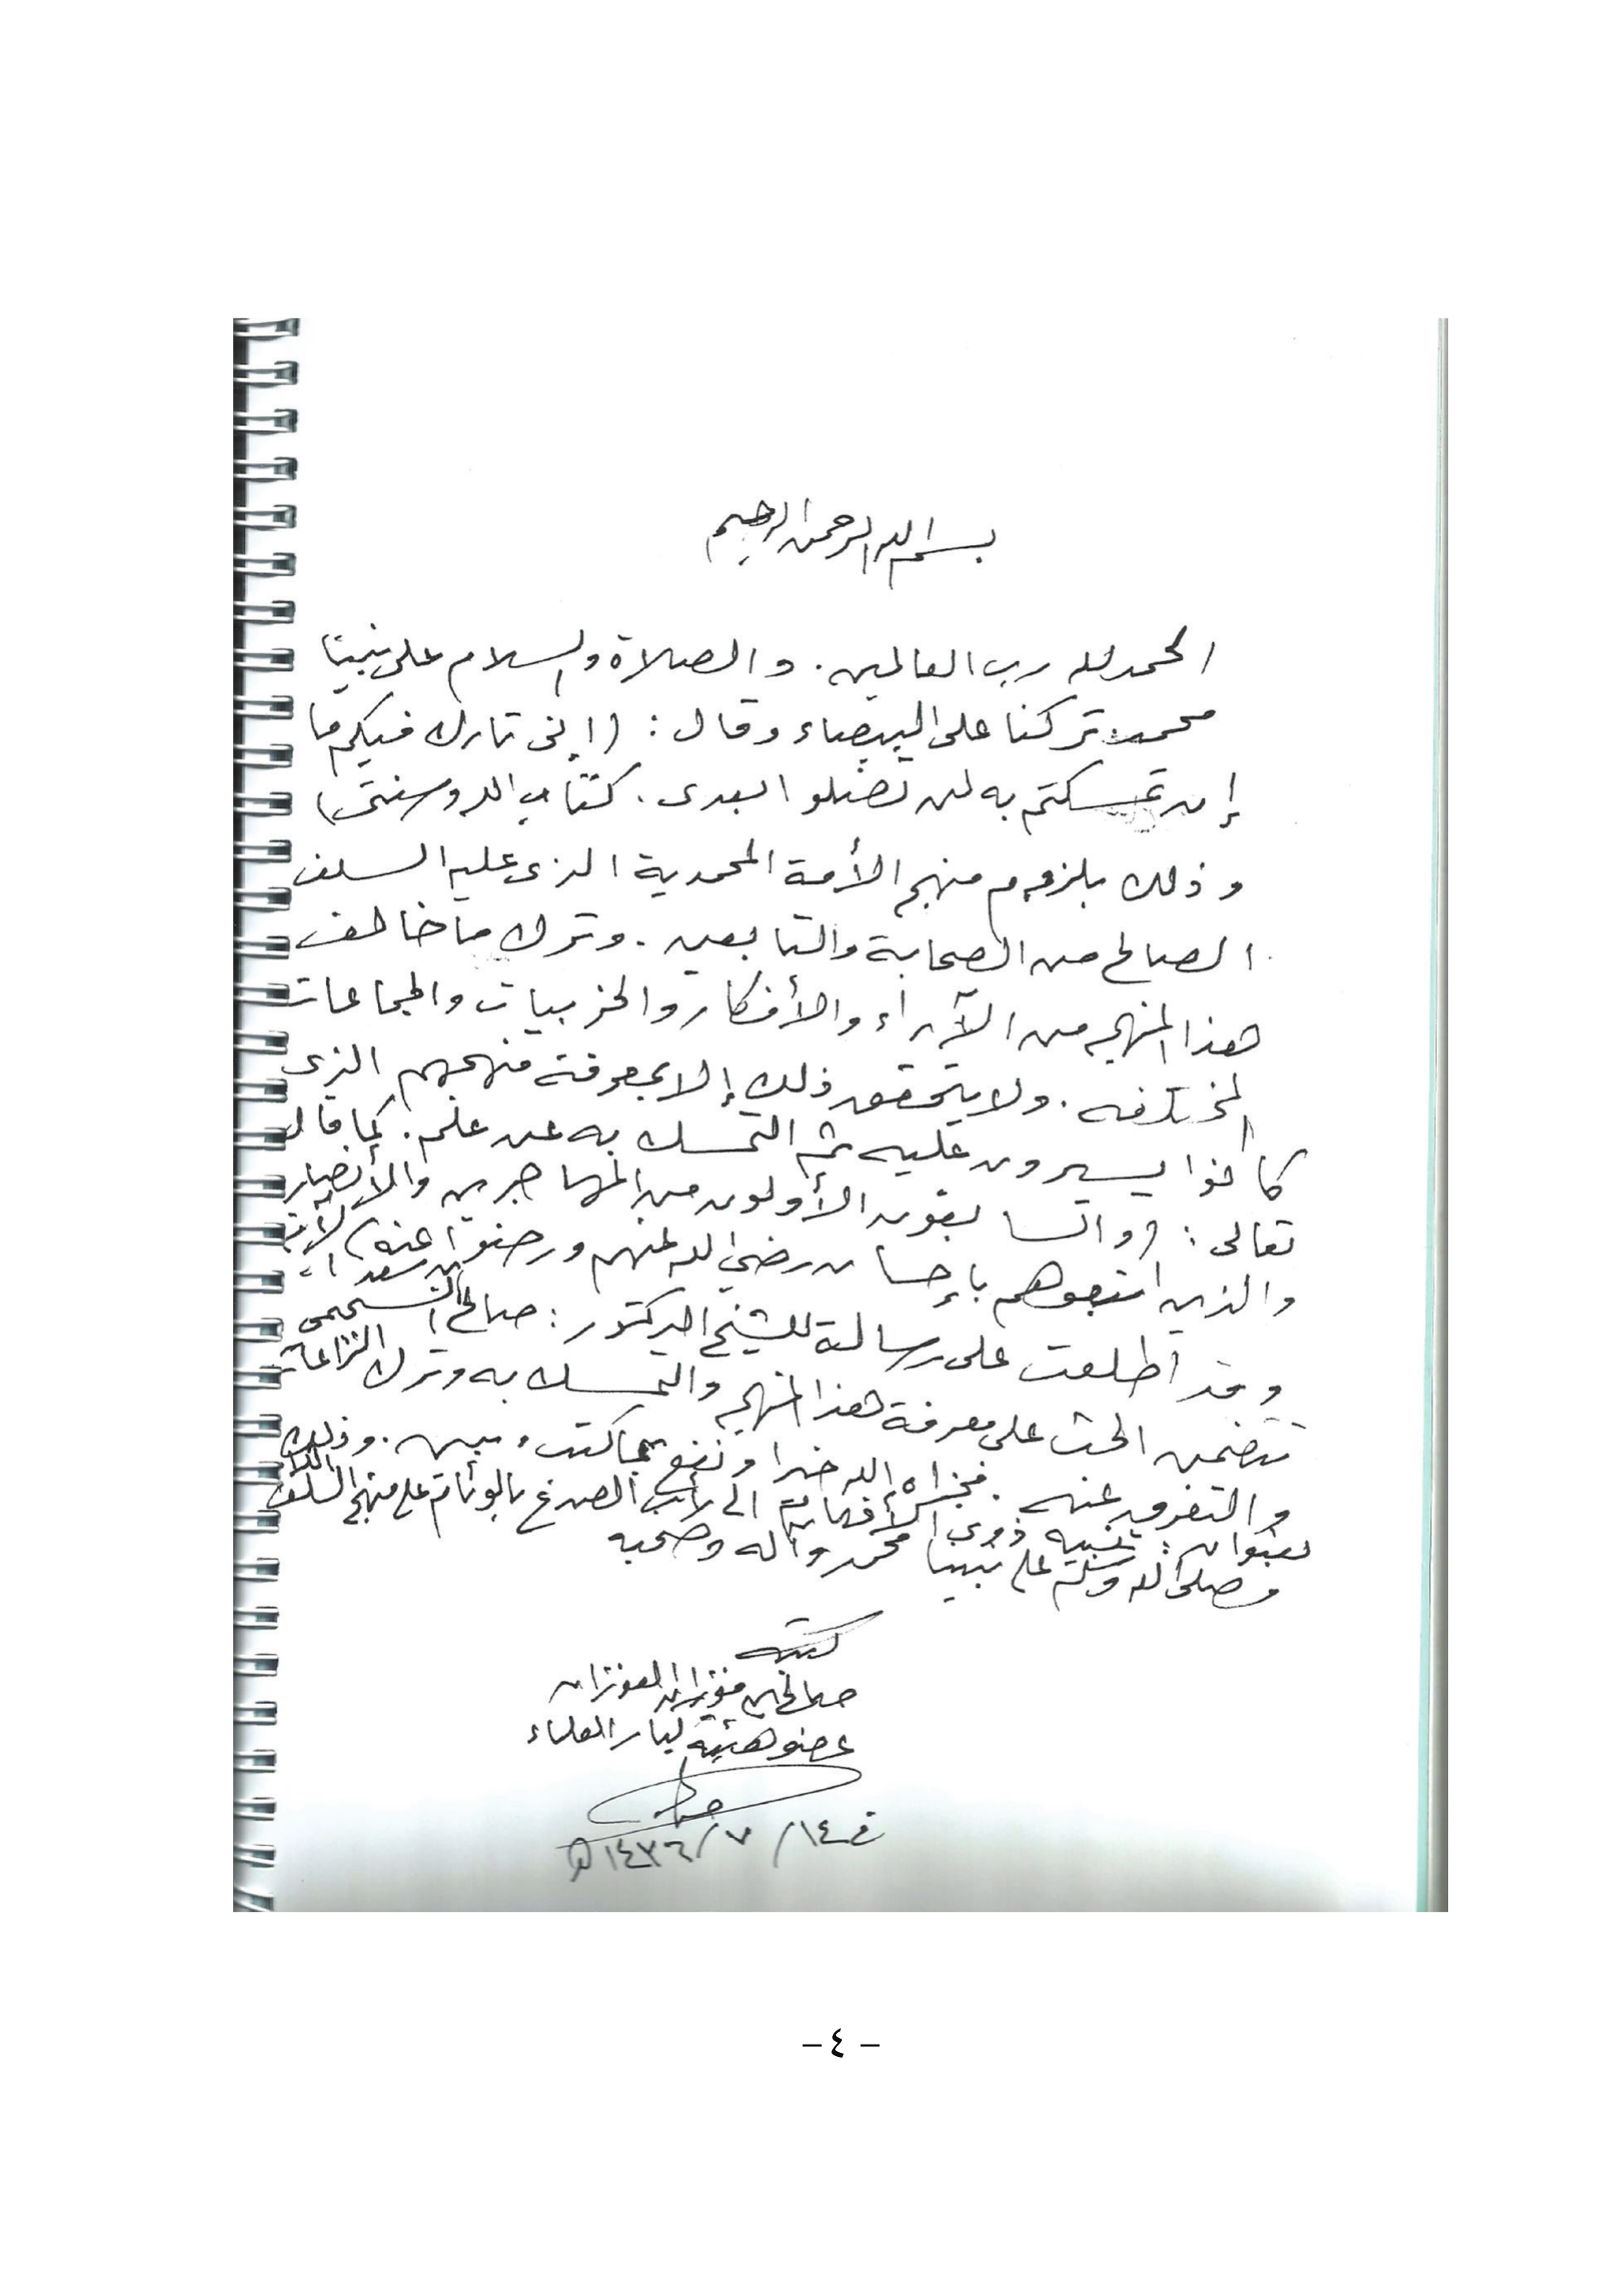 بسم الله الرحمن الرحيم
الحمد لله رب العالمين. والصلاة والسلام على نبينا
محمد تركنا على البيضاء وقال: (إنى تارك فيكم ما
إن تمسكتم به لن تضلوا بعدى. كتاب الله وسنتى)
وذلك بلزوم منهج الأمة المحمدية الذى عليه السلف
الصالح من الصحابة والتابعين. وترك ما خالف
هذا المنهج من الآراء والأفكار والحزبيات والجماعات
المختلفه. ولا يتحقق ذلك إلا بمعرفة منهجهم الذى
كانوا يسيرون عليه ثم التمسك به عن علم. كما قال
تعالى: (والسابقون الأولون من المهاجرين والأنصار
والذين اتبعوهم بإحسان رضي الله عنهم ورضوا عنه) الآية
وقد اطلعت على رسالة للشيخ الدكتور: صالح بن سعد السحيمى
تتضمن الحث على معرفة هذا المنهج والتمسك به وترك النزاعات
والتفرق عنه. فجزاه الله خيرا ونفع بما كتب وبين. وذلك
بعنوان: تنبيه ذوى الأفهام إلى رأب الصدع بالوئام على منهج السلف
وصلى الله وسلم على نبينا محمد وآله وصحبه
كتبه
صالح بن فوزان الفوزان
عضو هيئة كبار العلماء
في ١٤/ ٧ /١٤٣٦هـ
– ٤ –